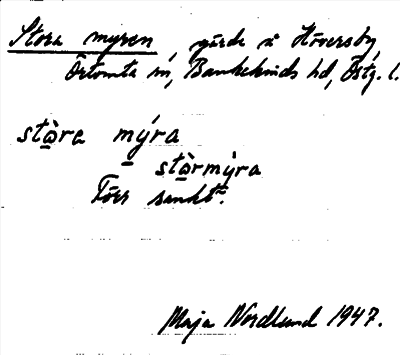 Stora myren, gärde å Höversby,
Örtomta sn, Bankekinds hd, Östg. l.
stòra mýra
stòrmýra
Förr sankt.
Maja Nordlund 1947.